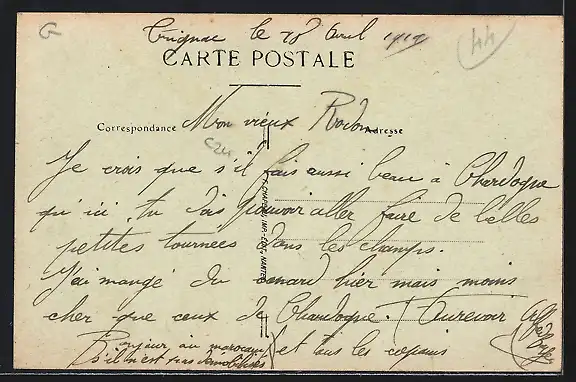 Trignac le 28 avril 1919
G
44
CARTE POSTALE
Correspondance
Adresse
Mon vieux Rodon
Je crois que s'il fais aussi beau à Chardogne
qu'ici, tu dois pouvoir aller faire de belles
petites tournées dans les champs.
J'ai mangé du canard hier mais moins
cher que ceux de Chardogne. Aurevoir
et tous les copains
Bonjour au marocain
s'il n'est pas démobilisés